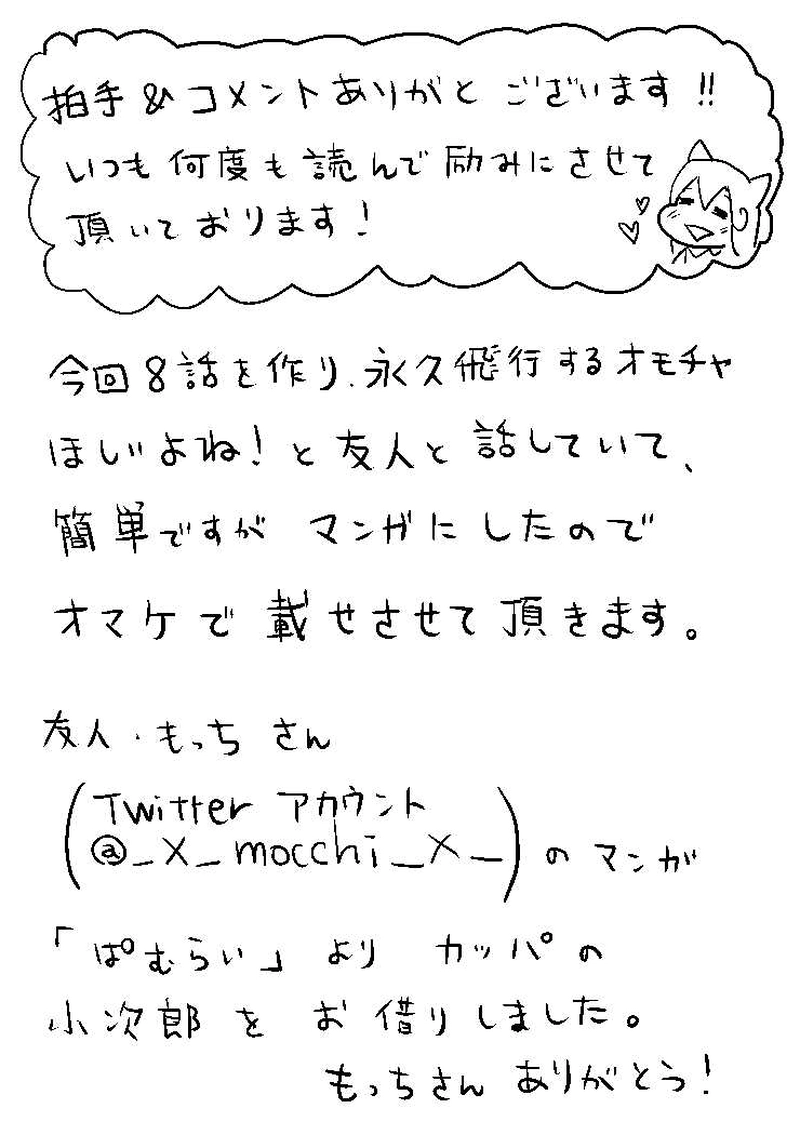 拍手&コメントありがとございます!!
いつも何度も読んで励みにさせて
頂いております!
今回8話を作り、永久飛行するオモチャ
ほしいよね!と友人と話していて、
簡単ですがマンガにしたので
オマケで載せさせて頂きます。
友人・もっちさん
(Twitterアカウント
@_X_mocchi_X_)のマンガ
「ぱむらい」よりカッパの
小次郎をお借りしました。
もっちさんありがとう!